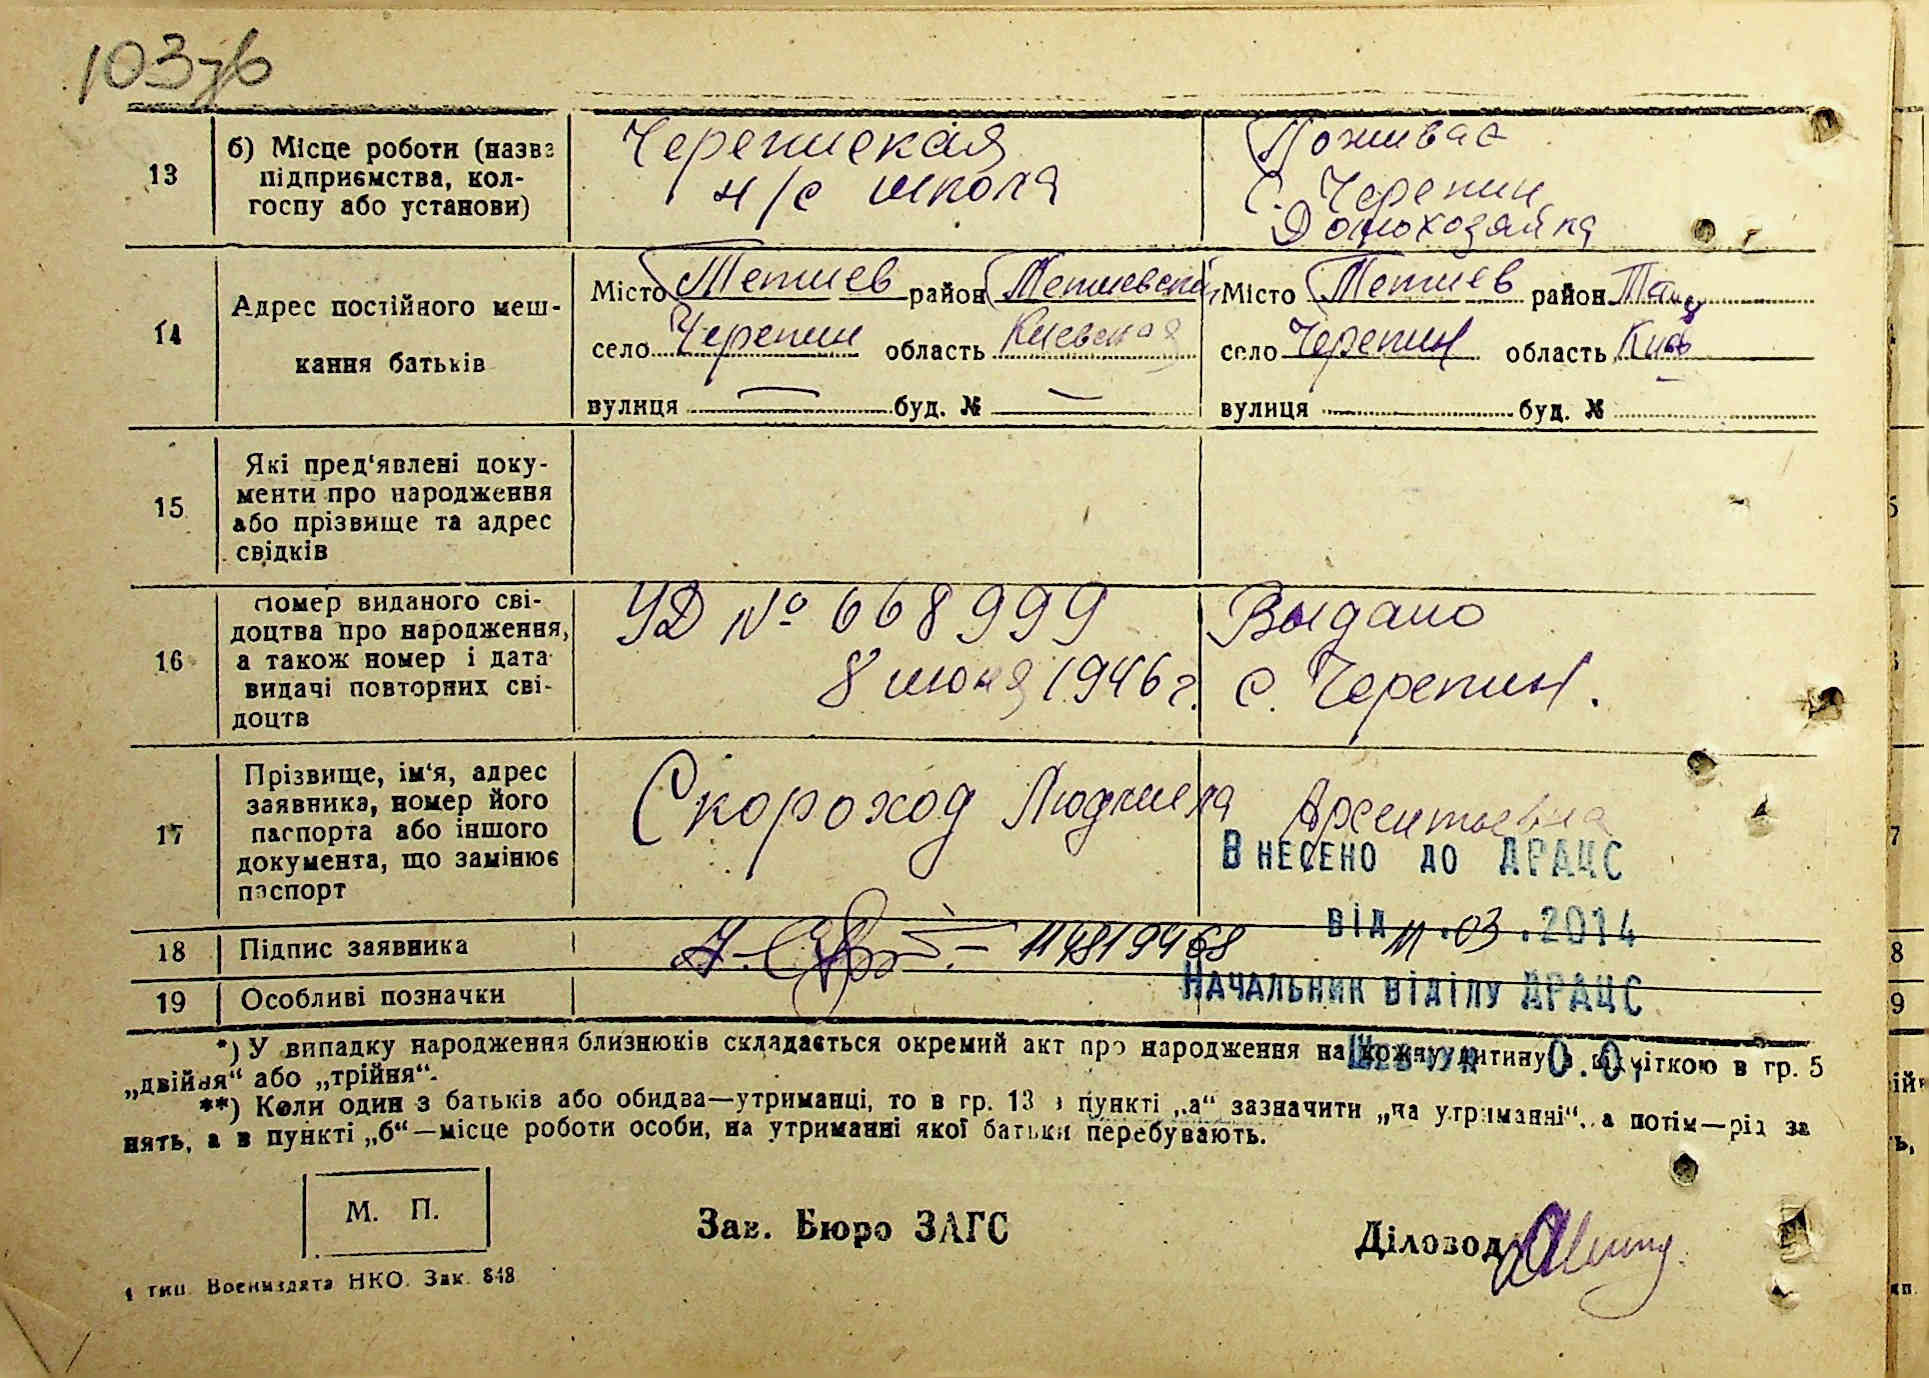 103зв
13
б) Місце роботи (назва
підприємства, кол-
госпу або установи)
Черепиская
н/с школа
Поживає
С. Черепин
Домохозяйка
14
Адрес постійного меш-
кання батьків
Місто Тетиев район Тетиевский
село Черепин область Киевская
вулиця — буд. № —
Місто Тетиев район
село Черепин область Киев
вулиця буд. №
15
Які пред‘явлені доку-
менти про народження
або прізвище та адрес
свідків
16
Номер виданого сві-
доцтва про народження,
а також номер і дата
видачі повторних сві-
доцтв
УД № 668999
8 июня 1946 г.
Выдано
с. Черепин.
17
Прізвище, ім‘я, адрес
заявника, номер його
паспорта або іншого
документа, що замінює
паспорт
Скороход Людмила Арсентьевна
Внесено до ДРАЦС
від 11.03.2014
18
Підпис заявника
114819468
Начальник відділу ДРАЦС
19
Особливі позначки
Шевчук О.О.
*) У випадку народження близнюків складається окремий акт про народження на кожну дитину з відміткою в гр. 5
„двійня“ або „трійня“.
**) Коли один з батьків або обидва—утриманці, то в гр. 13 в пункті „а“ зазначити „на утриманні“, а потім—рід за
нять, а в пункті „б“—місце роботи особи, на утриманні якої батьки перебувають.
М. П.
Зав. Бюро ЗАГС
Діловод
1 тип. Воениздата НКО. Зак. 848